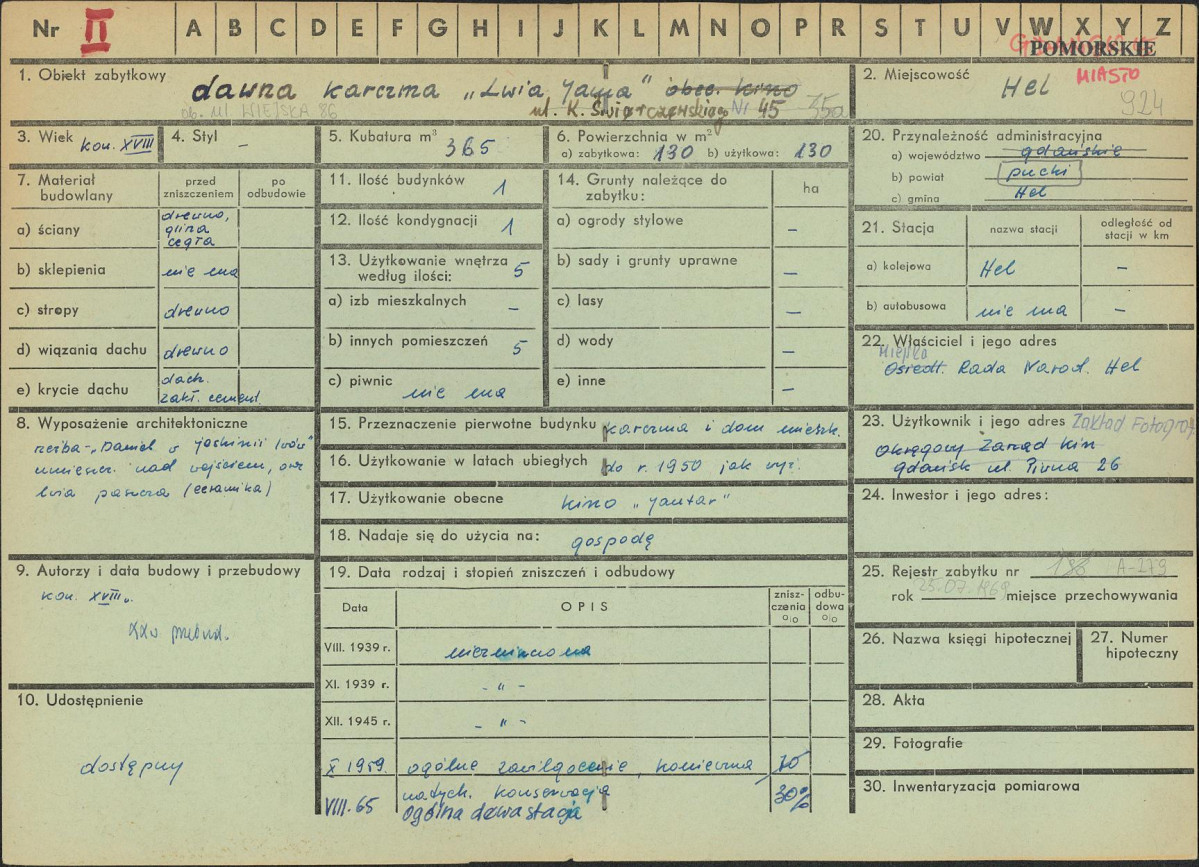 Nr II A B C D E F G H I J K L M N O P R S T U V W X Y Z
POMORSKIE
1. Obiekt zabytkowy dawna karczma „Lwia Jama" obec. kino
ob. ul. WIEJSKA 86 ul. K. Świerczewskiego Nr 45
2. Miejscowość Hel MIASTO
924
3. Wiek kon. XVIII
4. Styl –
5. Kubatura m³ 365
6. Powierzchnia w m²
a) zabytkowa: 130 b) użytkowa: 130
7. Materiał budowlany
przed zniszczeniem
po odbudowie
a) ściany drewno, glina cegła
b) sklepienia nie ma
c) stropy drewno
d) wiązania dachu drewno
e) krycie dachu dach. zakł. cement.
8. Wyposażenie architektoniczne
rzeźba - „Daniel w jaskinii lwów"
umieszcz. nad wejściem, oraz
lwia paszcza (ceramika)
9. Autorzy i data budowy i przebudowy
kon. XVIII w.
XX w przebud.
10. Udostępnienie
dostępny
11. Ilość budynków 1
12. Ilość kondygnacji 1
13. Użytkowanie wnętrza według ilości: 5
a) izb mieszkalnych –
b) innych pomieszczeń 5
c) piwnic nie ma
14. Grunty należące do zabytku:
ha
a) ogrody stylowe –
b) sady i grunty uprawne –
c) lasy –
d) wody –
e) inne –
15. Przeznaczenie pierwotne budynku karczma i dom mieszk.
16. Użytkowanie w latach ubiegłych do r. 1950 jak wyż.
17. Użytkowanie obecne kino „Jantar"
18. Nadaje się do użycia na: gospodę
19. Data rodzaj i stopień zniszczeń i odbudowy
Data
OPIS
znisz-
czenia
%
odbu-
dowa
%
VIII. 1939 r. niezniszczona
XI. 1939 r. - „ -
XII. 1945 r. - „ -
X 1959. ogólne zawilgocenie, konieczna
natych. konserwacja
VIII. 65 ogólna dewastacja 30%
20. Przynależność administracyjna
a) województwo gdańskie
b) powiat pucki
c) gmina Hel
21. Stacja
nazwa stacji
odległość od stacji w km
a) kolejowa Hel –
b) autobusowa nie ma –
22. Właściciel i jego adres
Miejska
Osiedl. Rada Narod. Hel
23. Użytkownik i jego adres Zakład Fotograf.
Okręgowy Zarząd Kin
Gdańsk ul. Piwna 26
24. Inwestor i jego adres:
25. Rejestr zabytku nr 188 A-279
rok 25.07.1962 miejsce przechowywania
26. Nazwa księgi hipotecznej
27. Numer hipoteczny
28. Akta
29. Fotografie
30. Inwentaryzacja pomiarowa